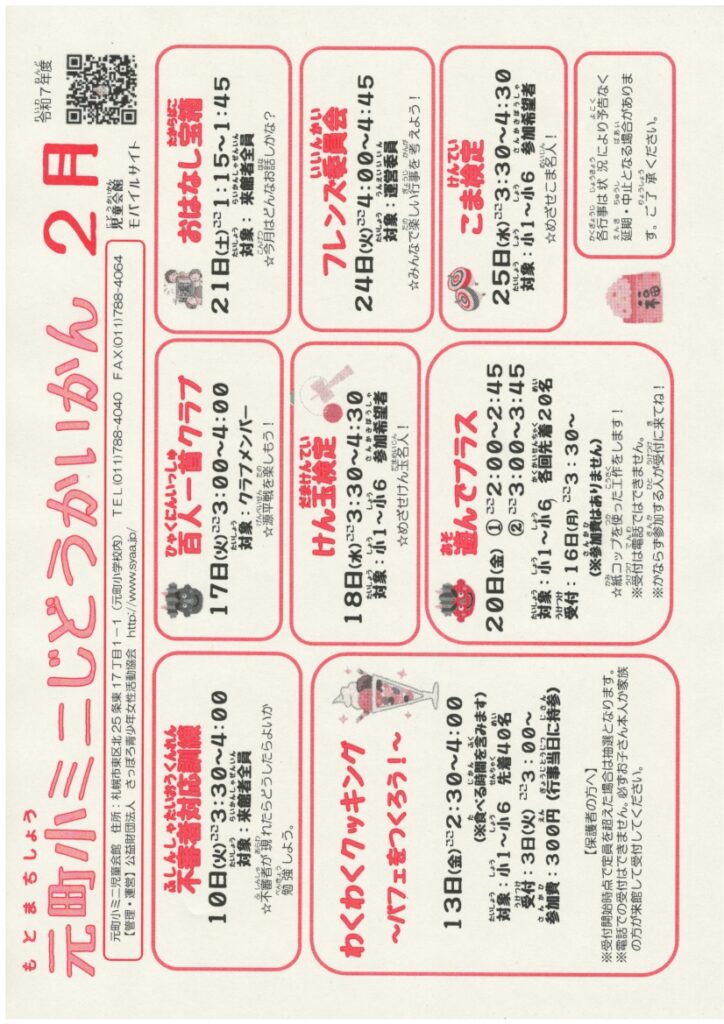 もとまちしょう
元町小ミニじどうかいかん 2月
令和7年度
児童会館
モバイルサイト
元町小ミニ児童会館 住所:札幌市東区北25条東17丁目1-1(元町小学校内) TEL(011)788-4040 FAX(011)788-4064
【管理・運営】公益財団法人 さっぽろ青少年女性活動協会 http://www.syaa.jp/
ふしんしゃたいおうくんれん
不審者対応訓練
10日(火)ごご3:30~4:00
対象:来館者全員
☆不審者が現れたらどうしたらよいか
勉強しよう。
ひゃくにんいっしゅ
百人一首クラブ
17日(火)ごご3:00~4:00
対象:クラブメンバー
☆源平戦を楽しもう!
たからばこ
おはなし宝箱
21日(土)ごご1:15~1:45
対象:来館者全員
☆今月はどんなお話しかな?
わくわくクッキング
~パフェをつくろう!~
13日(金)ごご2:30~4:00
(※食べる時間を含みます)
対象:小1~小6 先着40名
受付:3日(火)ごご3:00~
参加費:300円(行事当日に持参)
【保護者の方へ】
※受付開始時点で定員を超えた場合は抽選となります。
※電話での受付はできません。必ずお子さん本人か家族
の方が来館して受付してください。
だまけんてい
けん玉検定
18日(水)ごご3:30~4:30
対象:小1~小6 参加希望者
☆めざせけん玉名人!
いいんかい
フレンズ委員会
24日(火)ごご4:00~4:45
対象:運営委員
☆みんなで楽しい行事を考えよう!
あそ
遊んでプラス
20日(金) ①ごご2:00~2:45
②ごご3:00~3:45
対象:小1~小6 各回先着20名
受付:16日(月)ごご3:30~
(※参加費はありません)
☆紙コップを使った工作をします!
※受付は電話ではできません。
※かならず参加する人が受付に来てね!
けんてい
こま検定
25日(水)ごご3:30~4:30
対象:小1~小6 参加希望者
☆めざせこま名人!
福
各行事は状況により予告なく
延期・中止となる場合がありま
す。ご了承ください。